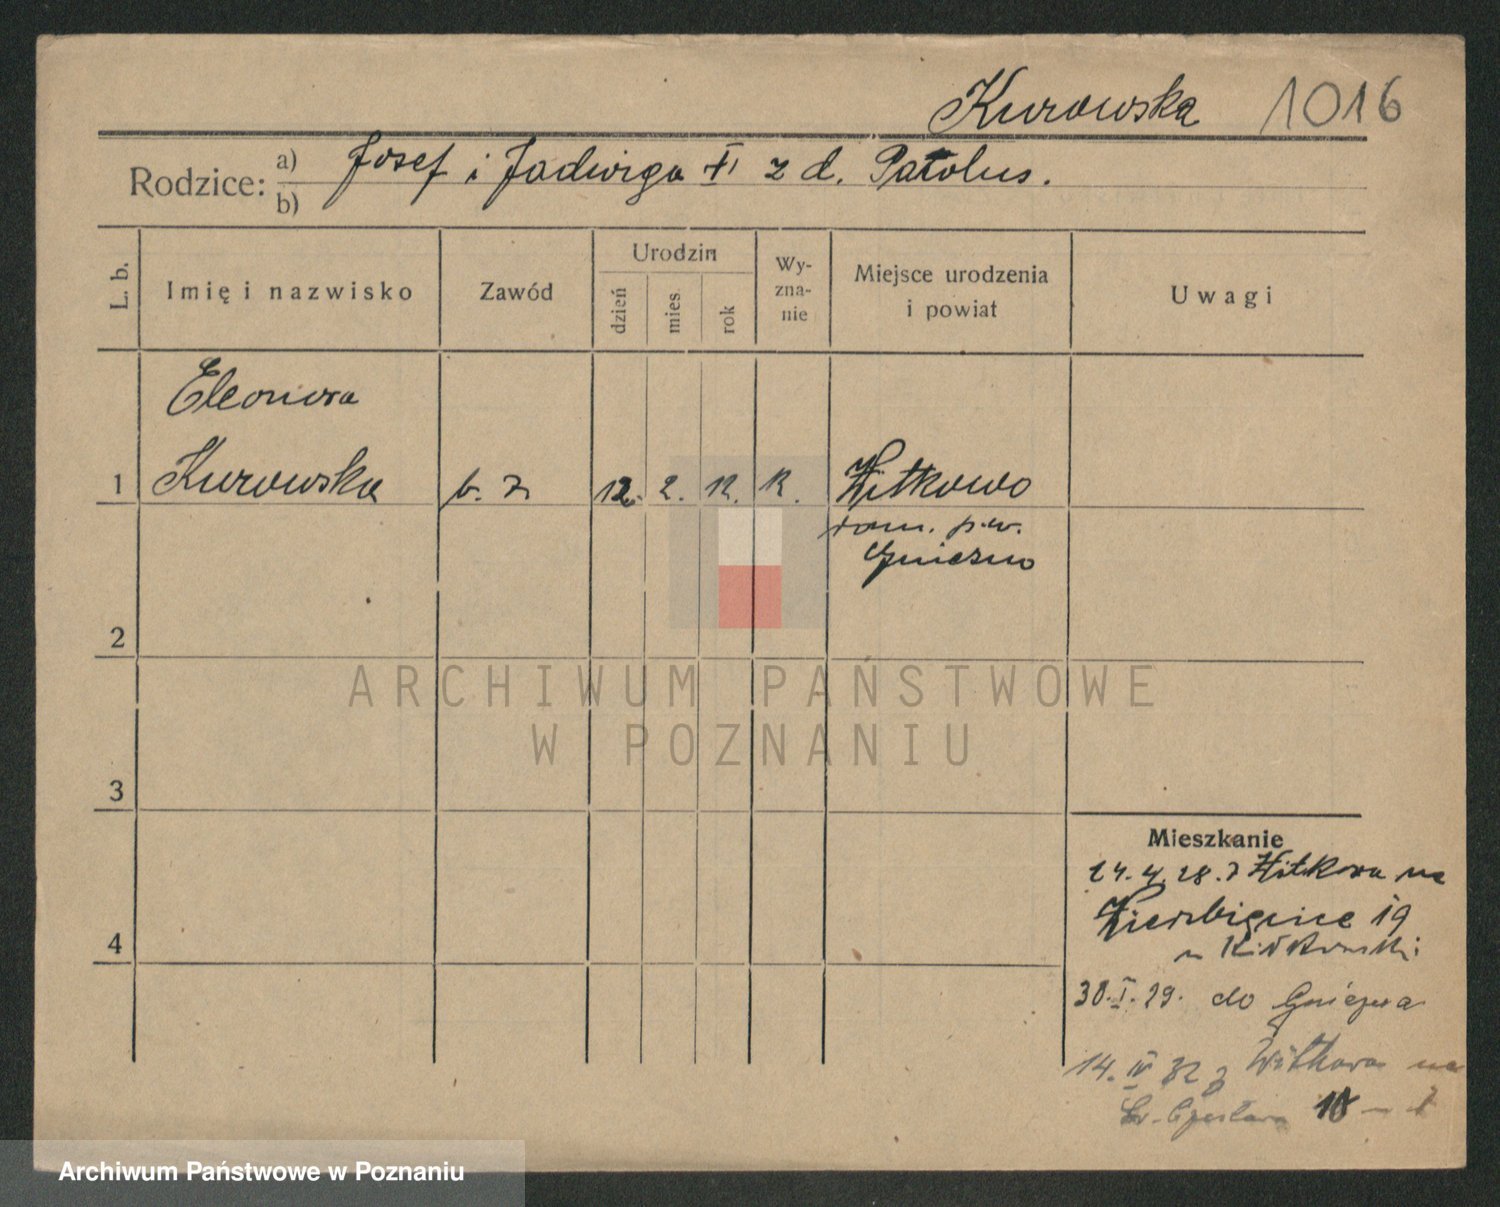 Kurowska 1016
Rodzice: a) Josef i Jadwiga z d. Patolus.
b)
L. b.
Imię i nazwisko
Zawód
Urodzin
dzień
mies.
rok
Wy-
zna-
nie
Miejsce urodzenia
i powiat
Uwagi
Eleonora
1 Kurowska b. z 12. 2. 12. R. Witkowo
zam. p.w.
Gniezno
2
ARCHIWUM PAŃSTWOWE
W POZNANIU
3
Mieszkanie
24.4.28. z Witkowa na
Wierzbięcice 19
30.I.29. do Gniezna
4
14.IV 32 z Witkowa na
Św. Czesława 18 –
Archiwum Państwowe w Poznaniu